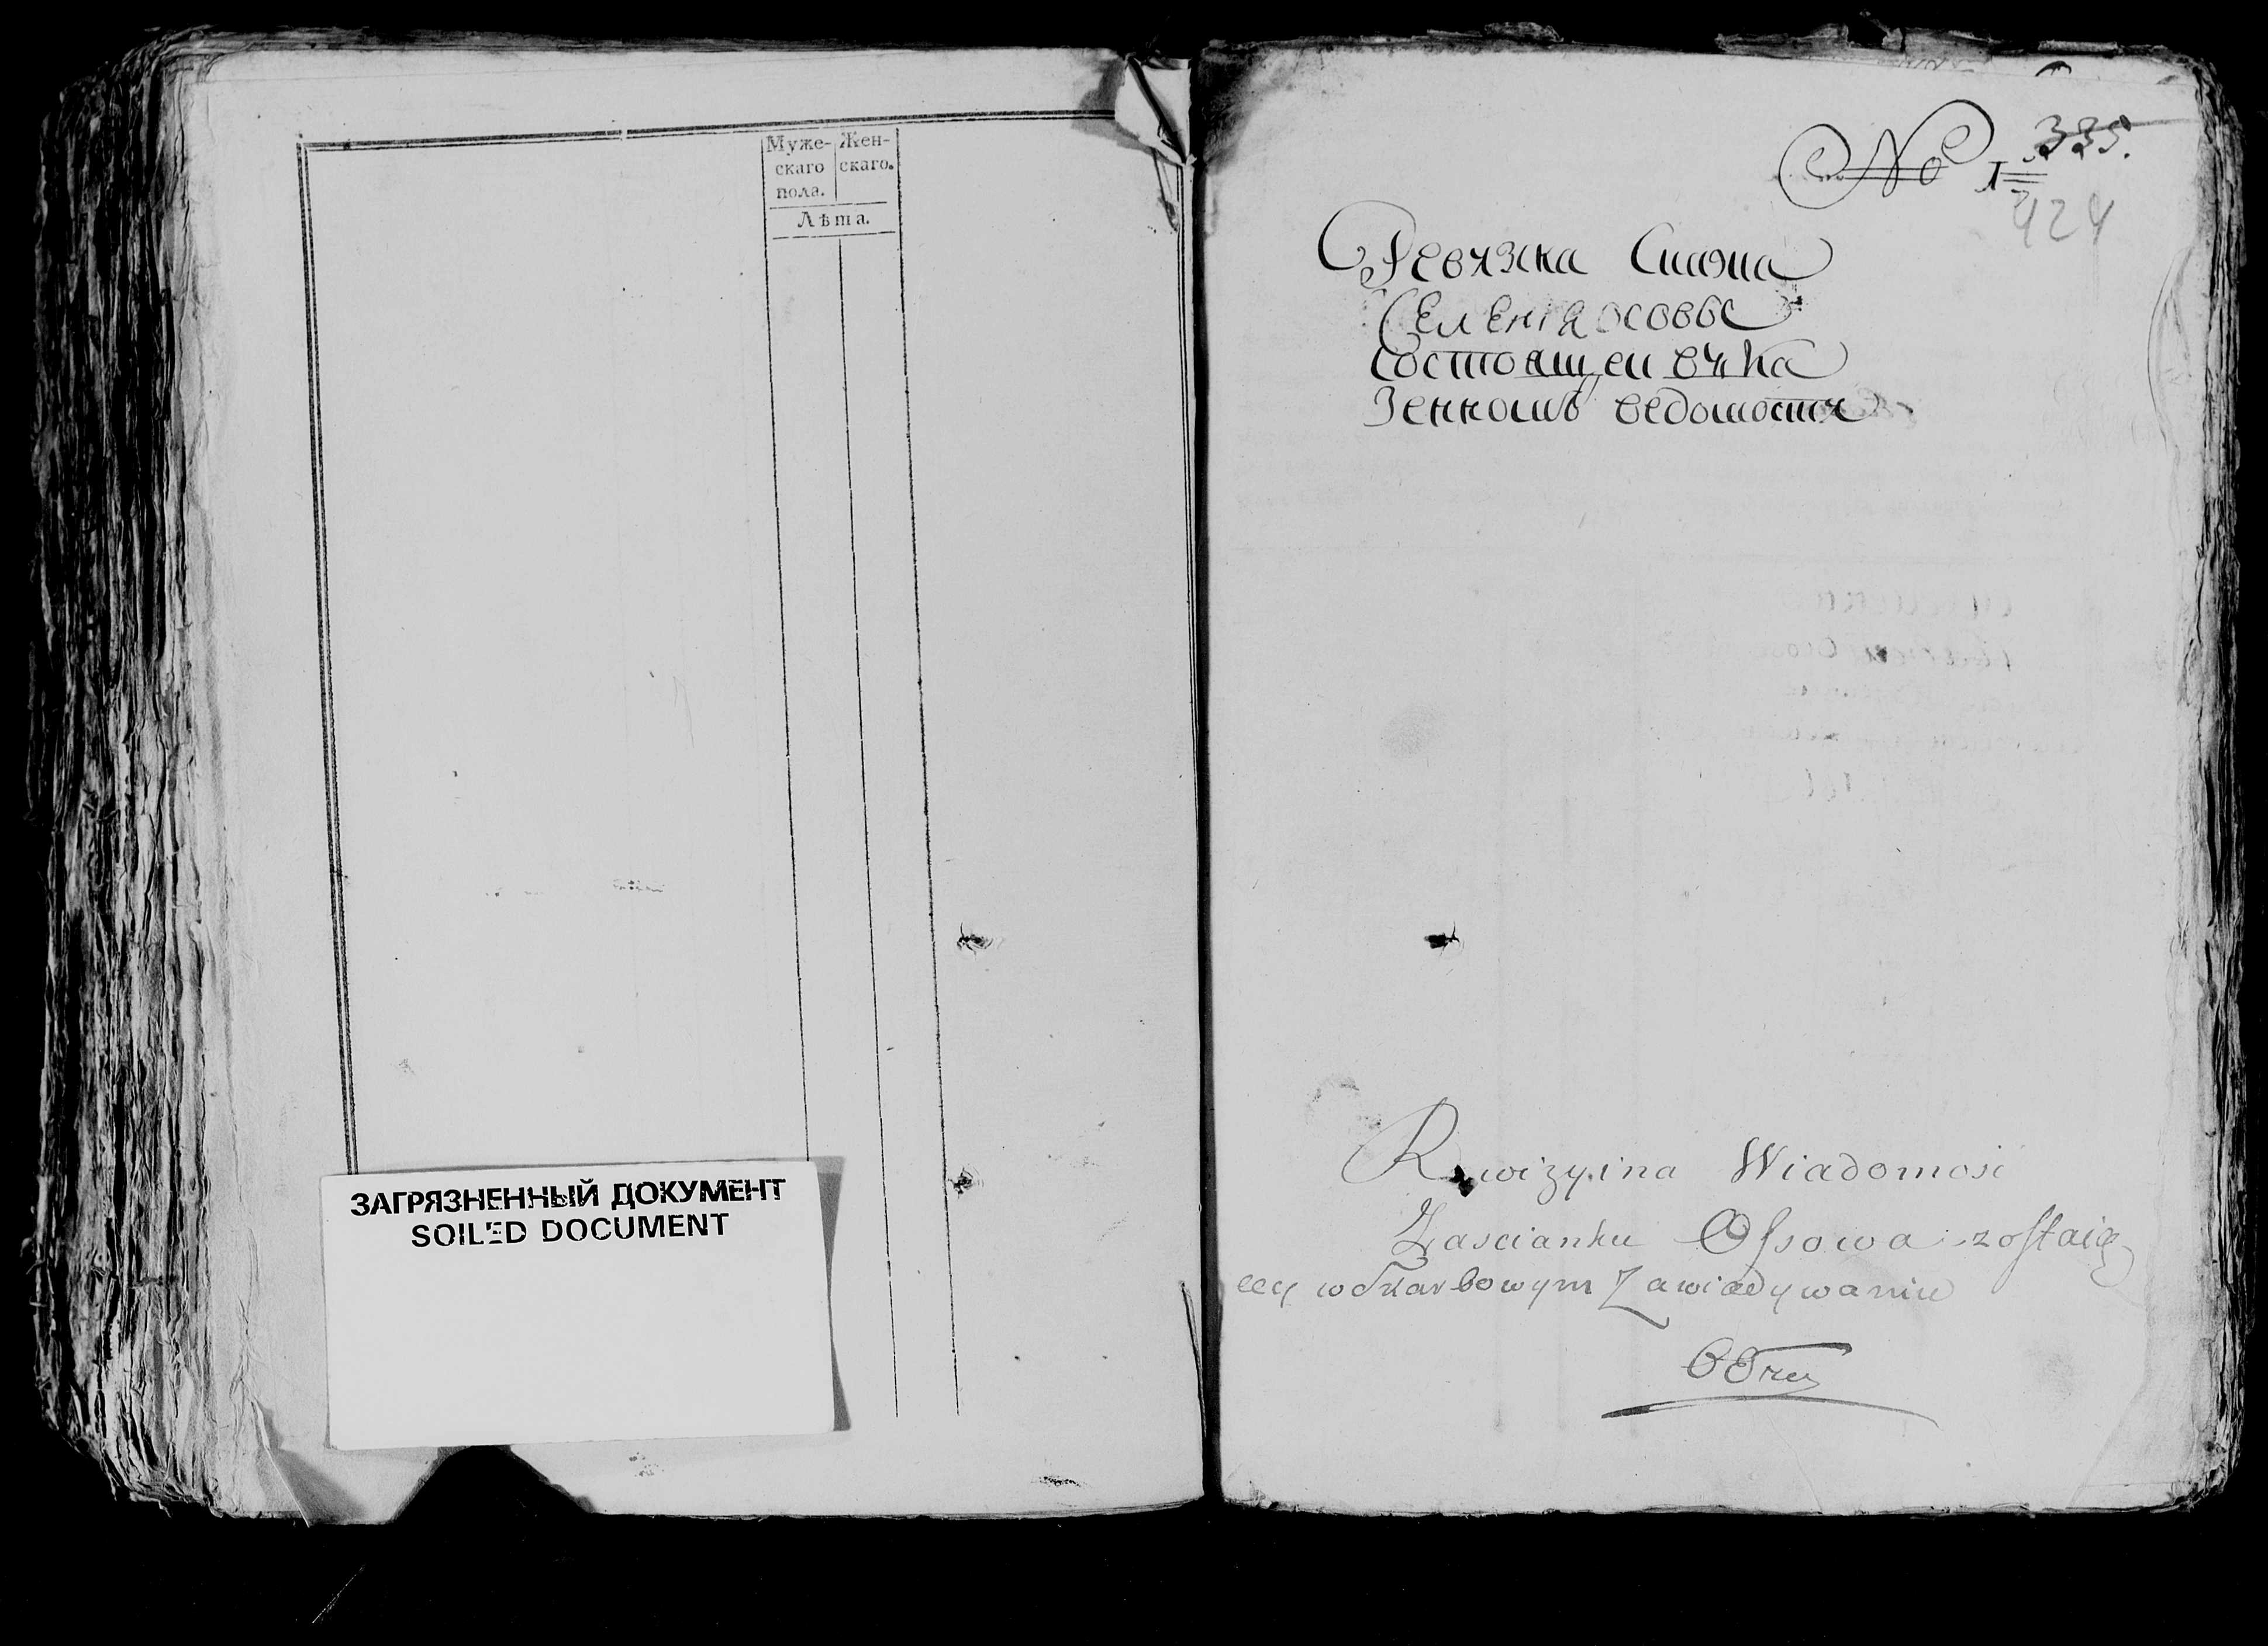 Муже-
скаго
пола.
Жен-
скаго.
Лѣта.
ЗАГРЯЗНЕННЫЙ ДОКУМЕНТ
SOILED DOCUMENT
No 1
335.
424
Ревязка
Селенія Осовы
состоящеи
ведомости
Rewizyina Wiadomosc
Zascianku Ossowa zostaią
cey w Skarbowym Zawiadywaniu